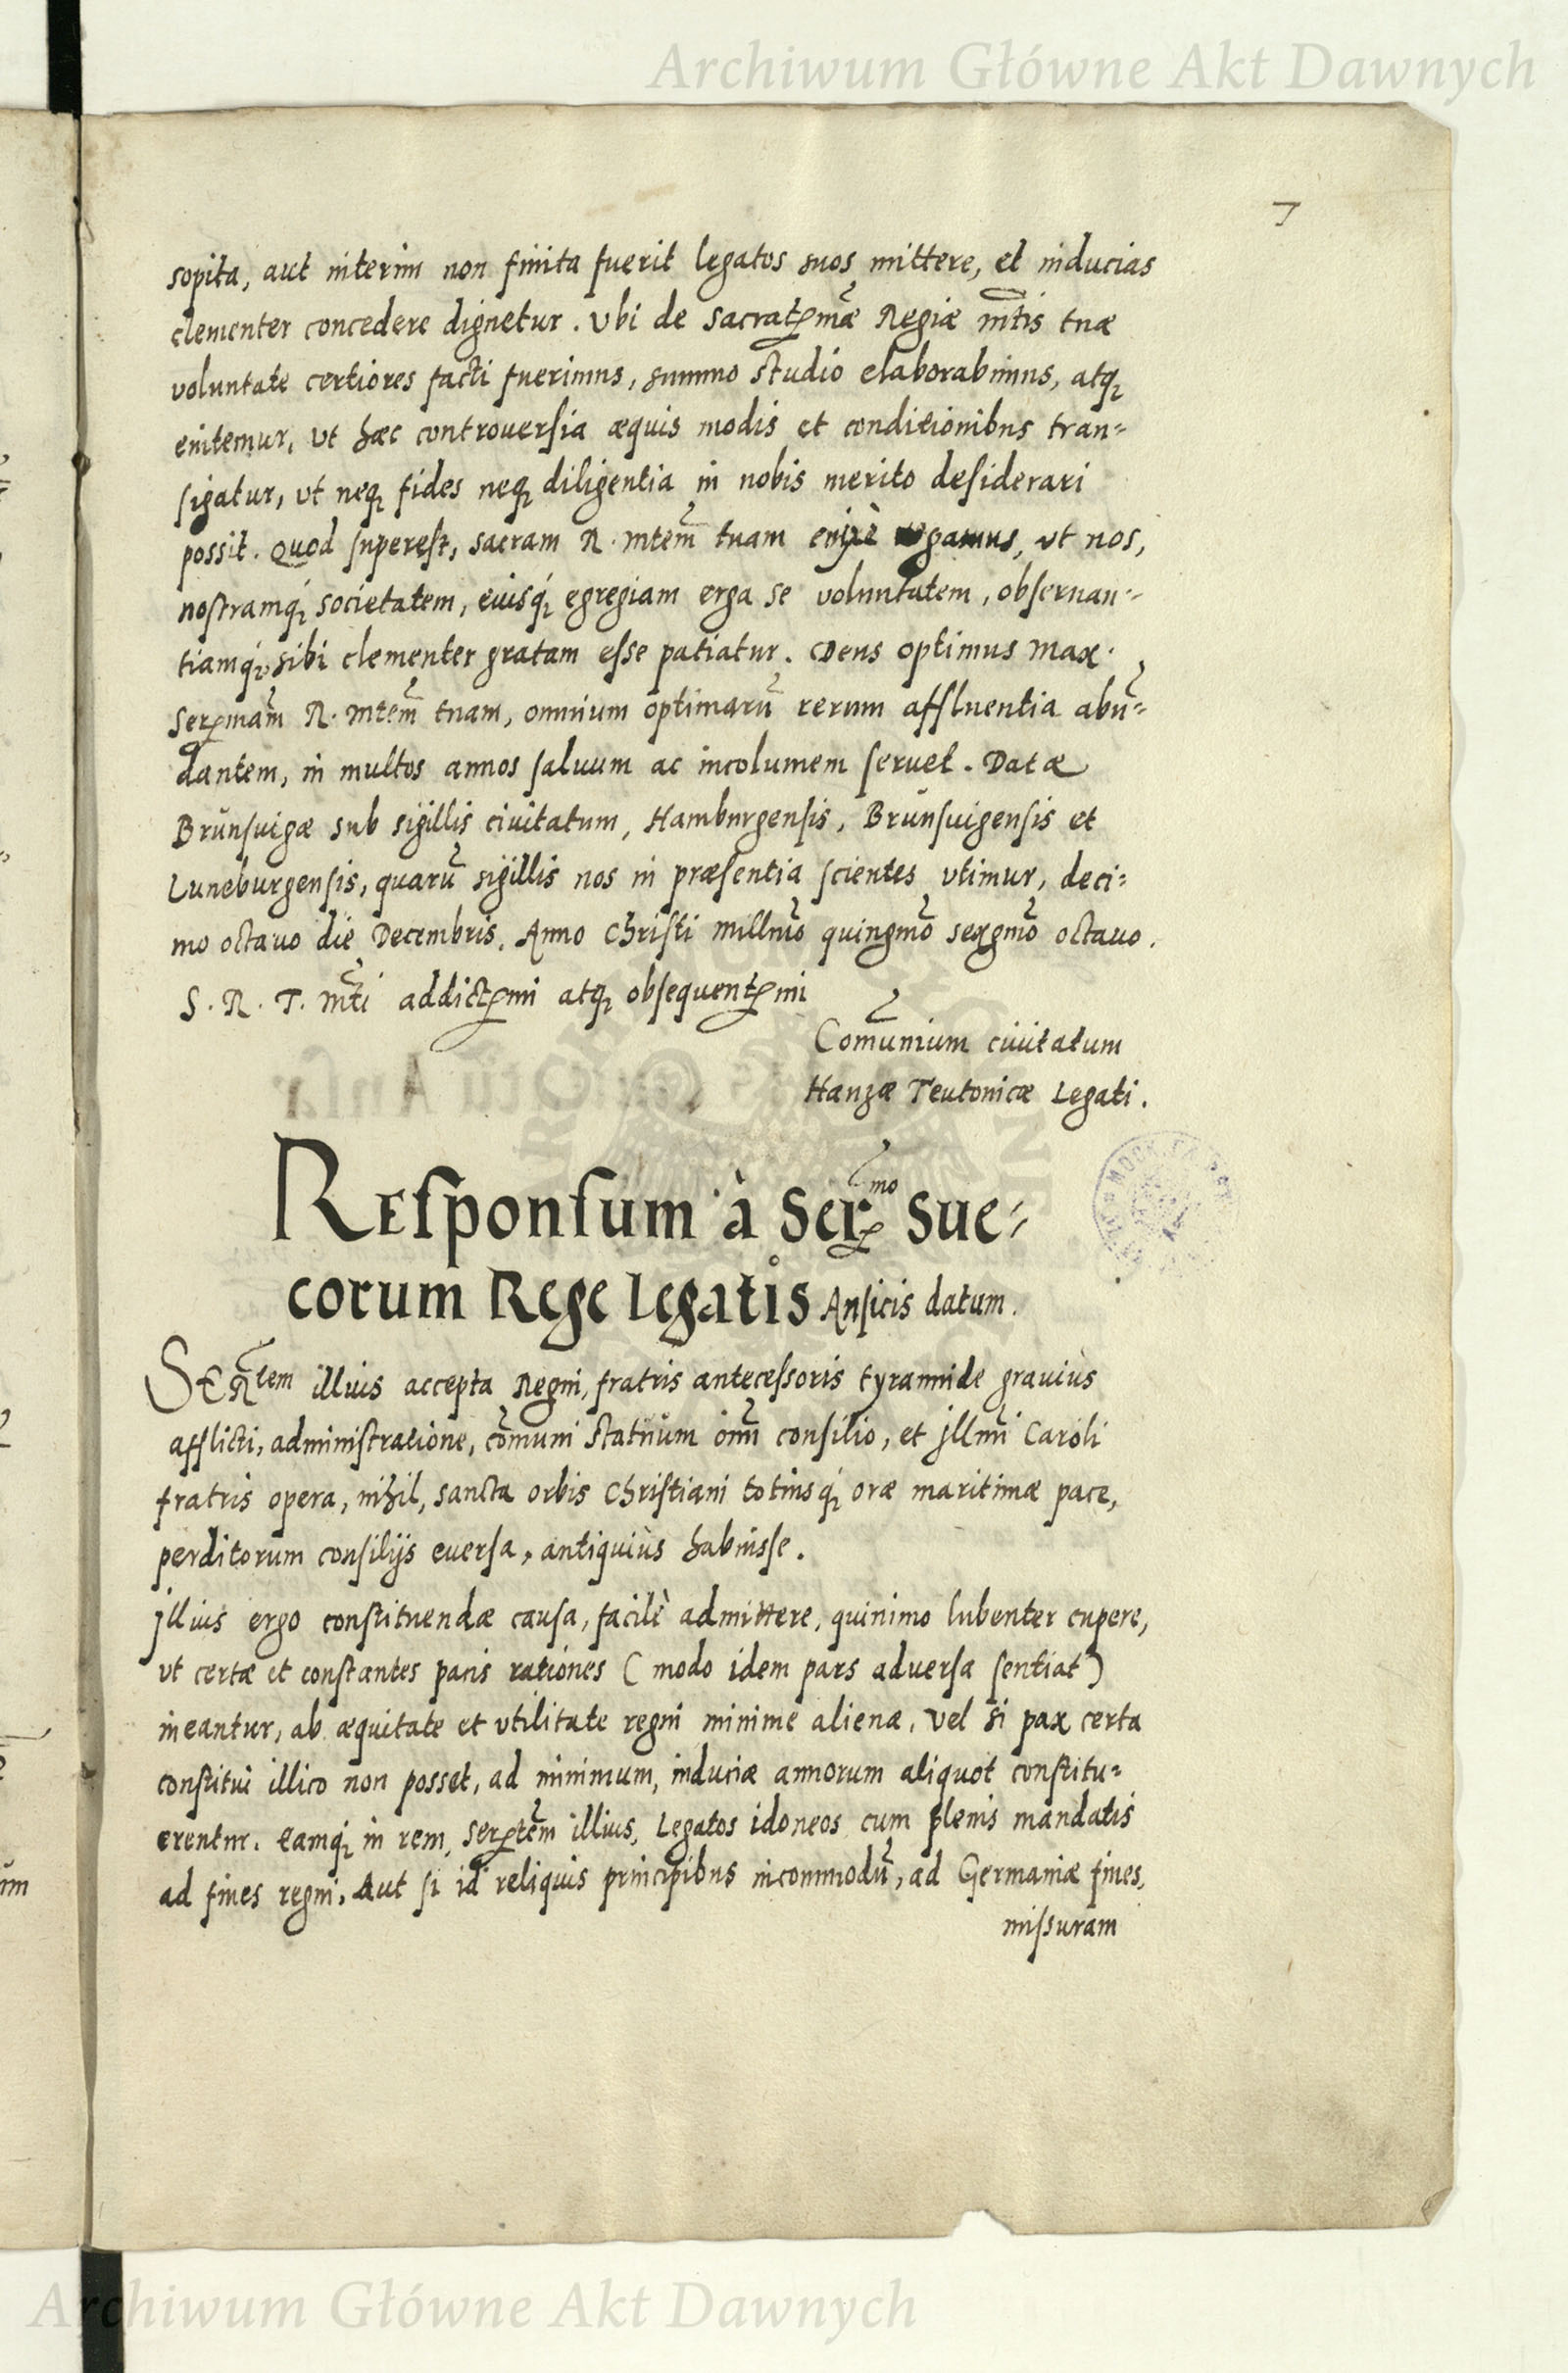 Archiwum Główne Akt Dawnych
7
sopita, aut interim non finita fuerit legatos suos mittere, et inducias
clementer concedere dignetur. Vbi de Sacratmæ Regiæ mtis tuæ
voluntate certiores facti fuerimus, summo studio elaborabimus, atq;
enitemur, vt hæc controuersia æquis modis et conditionibus tran-
sigatur, vt neq; fides neq; diligentia in nobis merito desiderari
possit. Quod superest, sacram R. mtem tuam enixè rogamus, vt nos,
nostramq; societatem, eiusq; egregiam erga se voluntatem, obseruan-
tiamq; sibi clementer gratam esse patiatur. Deus optimus Max.
Sermam R. mtem tuam, omnium optimarū rerum affluentia abū-
dantem, in multos annos saluum ac incolumem seruet. Datæ
Brunsuigæ sub sigillis ciuitatum, Hamburgensis, Brunsuigensis et
Luneburgensis, quarū sigillis nos in præsentia scientes vtimur, deci-
mo octauo die Decembris. Anno Christi millmo quingmo sexgmo octauo.
S. R. T. Mti addictmi atq; obsequentmi
Com̄unium ciuitatum
Hanzæ Teutonicæ Legati.
Responsum à Sermo Sue-
corum Rege Legatis Ansicis datum.
SERtem illius accepta Regni, fratris antecessoris tyrannide grauiùs
afflicti, administratione, com̄uni Statuum om̄i consilio, et Illmi Caroli
fratris opera, nihil, sancta orbis Christiani totiusq; oræ maritimæ pace,
perditorum consilijs euersa, antiquiùs habuisse.
Illius ergo constituendæ causa, facilè admittere, quinimo lubenter cupere,
vt certæ et constantes pacis rationes (modo idem pars aduersa sentiat)
ineantur, ab æquitate et vtilitate regni minime alienæ. Vel si pax certa
constitui illico non posset, ad minimum, induciæ annorum aliquot constitu-
erentur. Eamq; in rem, Sertem illius, Legatos idoneos cum plenis mandatis
ad fines regni, Aut si id reliquis principibus incommodū, ad Germaniæ fines,
missuram
Archiwum Główne Akt Dawnych